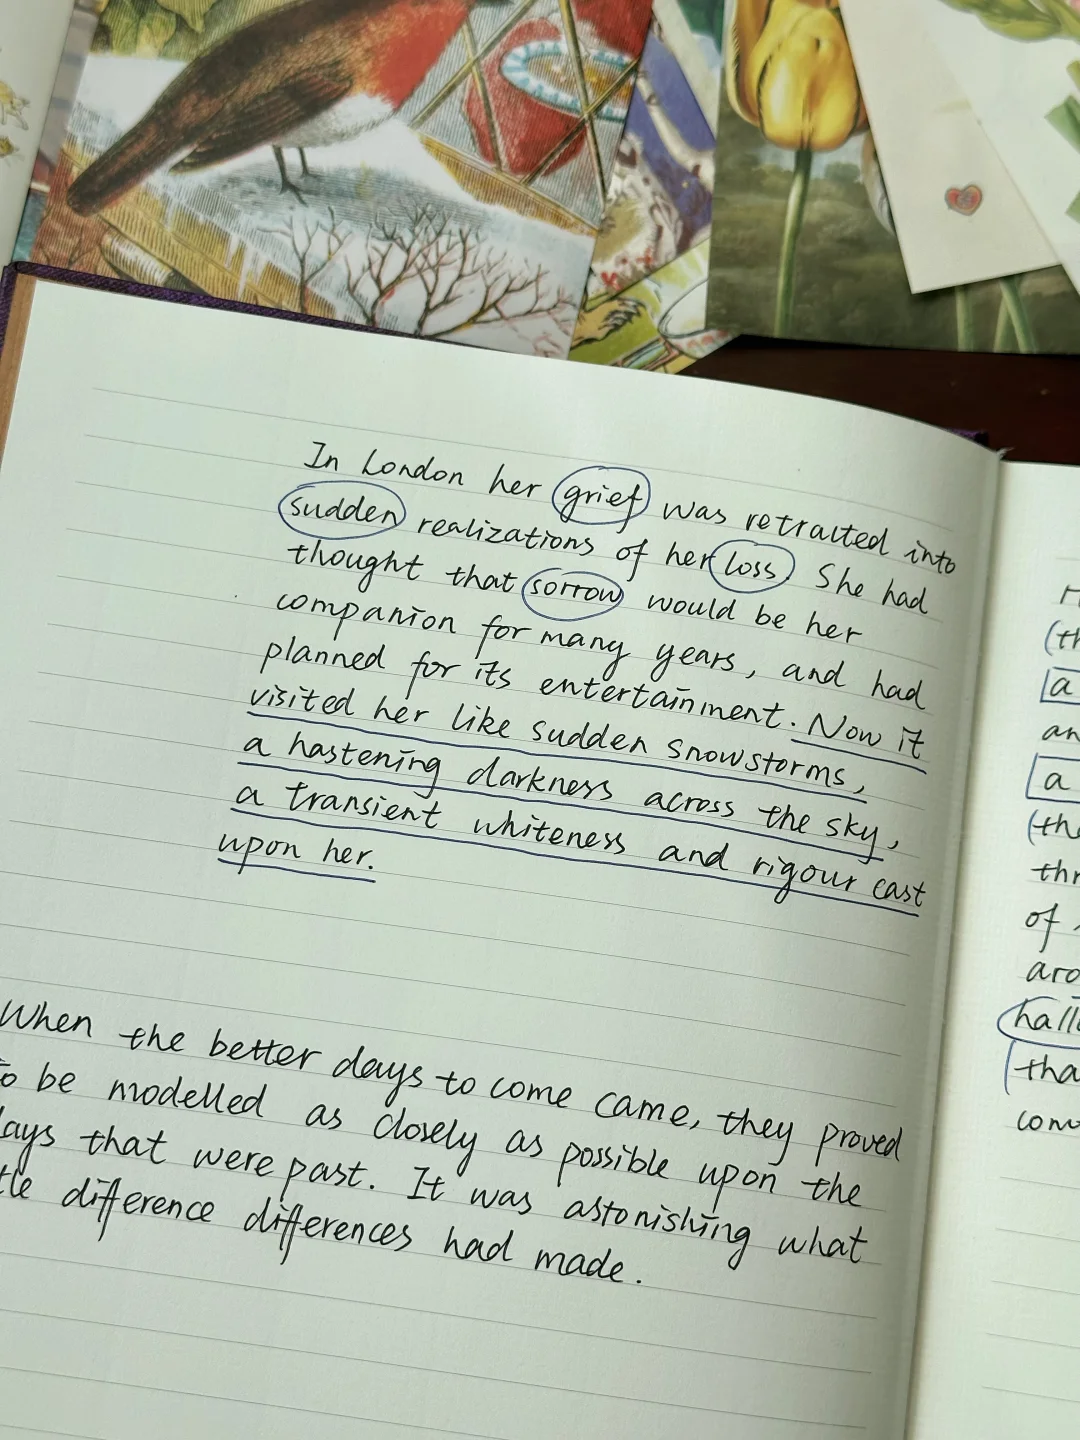 In London her grief was retracted into
sudden realizations of her loss. She had
thought that sorrow would be her
companion for many years, and had
planned for its entertainment. Now it
visited her like sudden snowstorms,
a hastening darkness across the sky,
a transient whiteness and rigour cast
upon her.
When the better days to come came, they proved
to be modelled as closely as possible upon the
days that were past. It was astonishing what
difference differences had made.
(th
a
an
a
(the
thr
of
aro
hall
tha